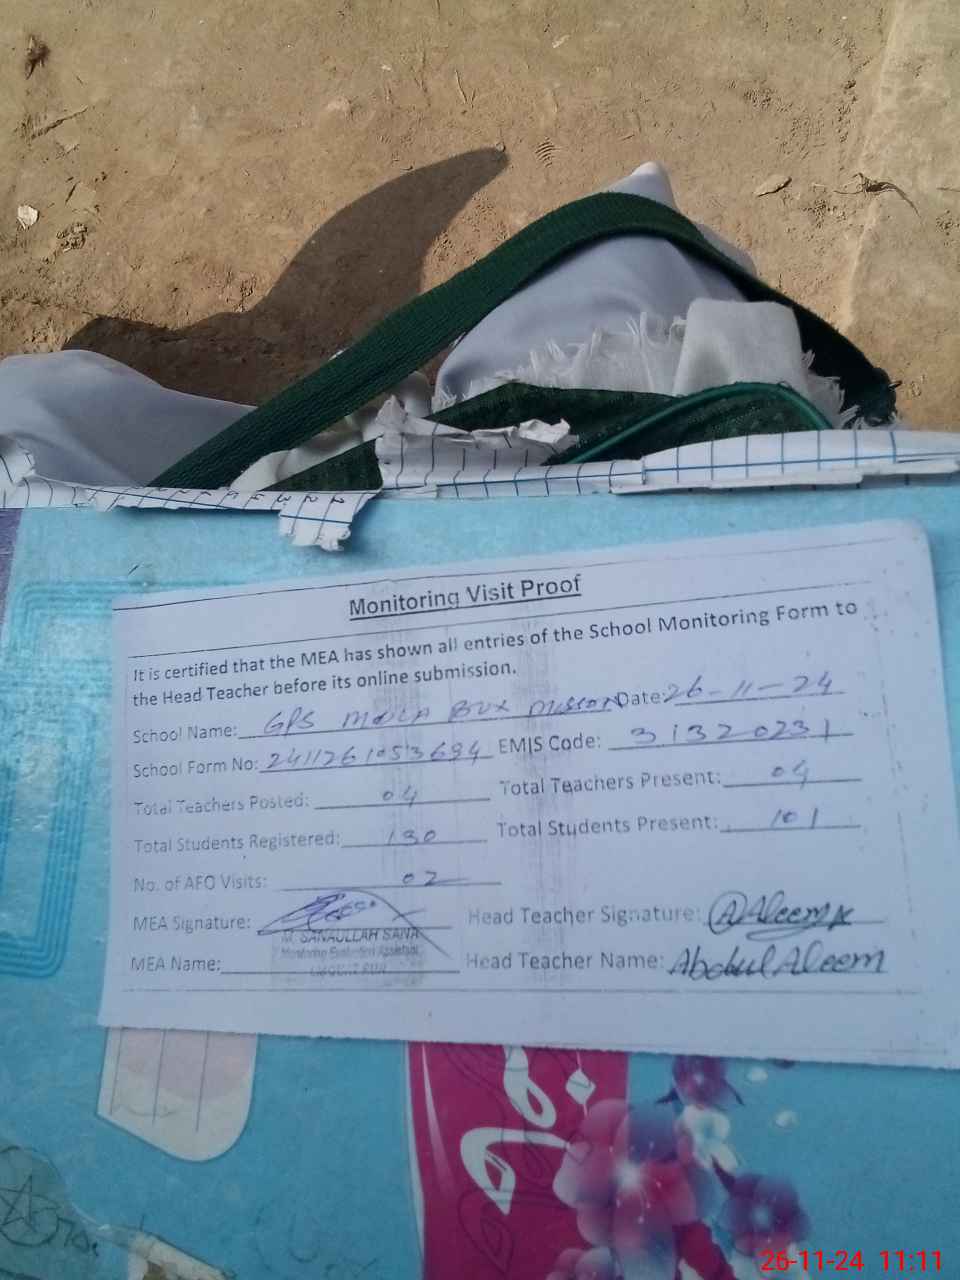 Monitoring Visit Proof
It is certified that the MEA has shown all entries of the School Monitoring Form to
the Head Teacher before its online submission.
School Name: GPS MOULA BUX Date: 26-11-24
School Form No: 2411261053694 EMIS Code: 31320231
Total Teachers Posted: 04 Total Teachers Present: 04
Total Students Registered: 130 Total Students Present: 101
No. of AEO Visits: 02
MEA Signature: Head Teacher Signature: Aleem
M. SANAULLAH SANA
Monitoring Evaluation Assistant
MEA Name: Head Teacher Name: Abdul Aleem
26-11-24 11:11